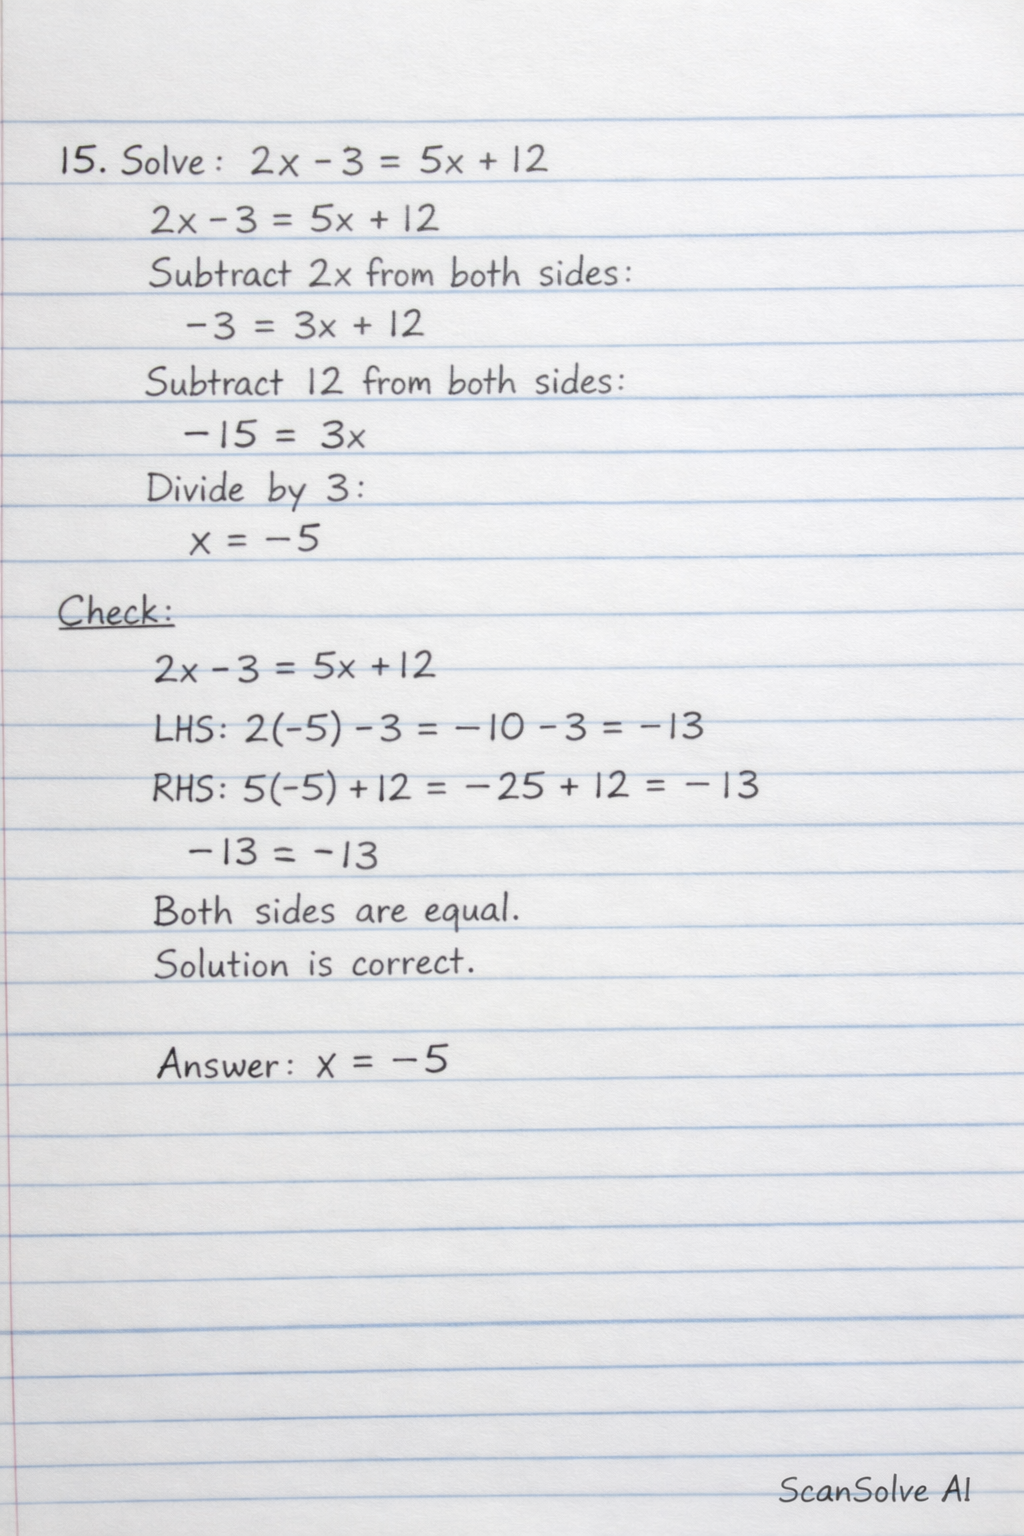 15. Solve: 2x - 3 = 5x + 12
2x - 3 = 5x + 12
Subtract 2x from both sides:
-3 = 3x + 12
Subtract 12 from both sides:
-15 = 3x
Divide by 3:
x = -5
Check:
2x - 3 = 5x + 12
LHS: 2(-5) - 3 = -10 - 3 = -13
RHS: 5(-5) + 12 = -25 + 12 = -13
-13 = -13
Both sides are equal.
Solution is correct.
Answer: x = -5
ScanSolve AI